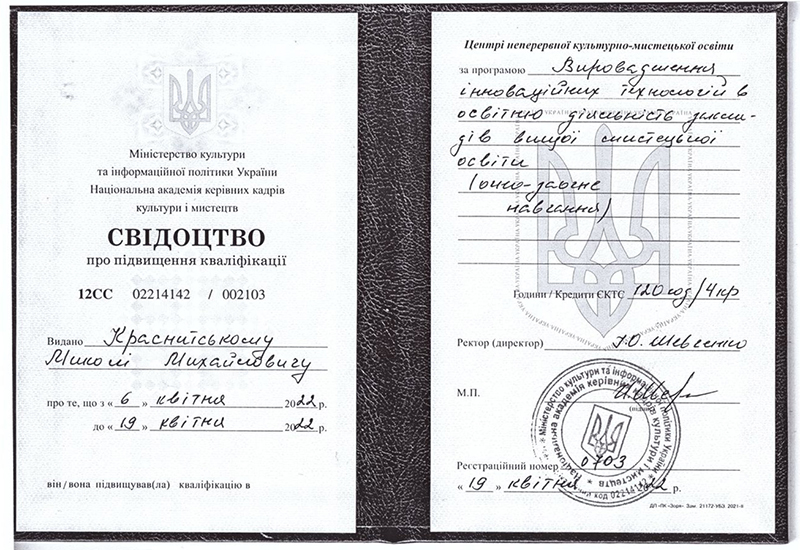 Міністерство культури
та інформаційної політики України
Національна академія керівних кадрів
культури і мистецтв
СВІДОЦТВО
про підвищення кваліфікації
12СС 02214142 / 002103
Видано Красницькому
Миколі Михайловичу
про те, що з « 6 » квітня 2022 р.
до « 19 » квітня 2022 р.
він/вона підвищував(ла) кваліфікацію в
Центрі неперервної культурно-мистецької освіти
за програмою Впровадження
інноваційних технологій в
освітню діяльність закла-
дів вищої мистецької
освіти
(очно-заочне
навчання)
Години / Кредити ЄКТС 120 год/4кр
Ректор (директор)
М.П.
(підпис)
Реєстраційний номер 0703
« 19 » квітня 2022 р.
ДП «ПК «Зоря». Зам. 21172-УБЗ. 2021-ІІ